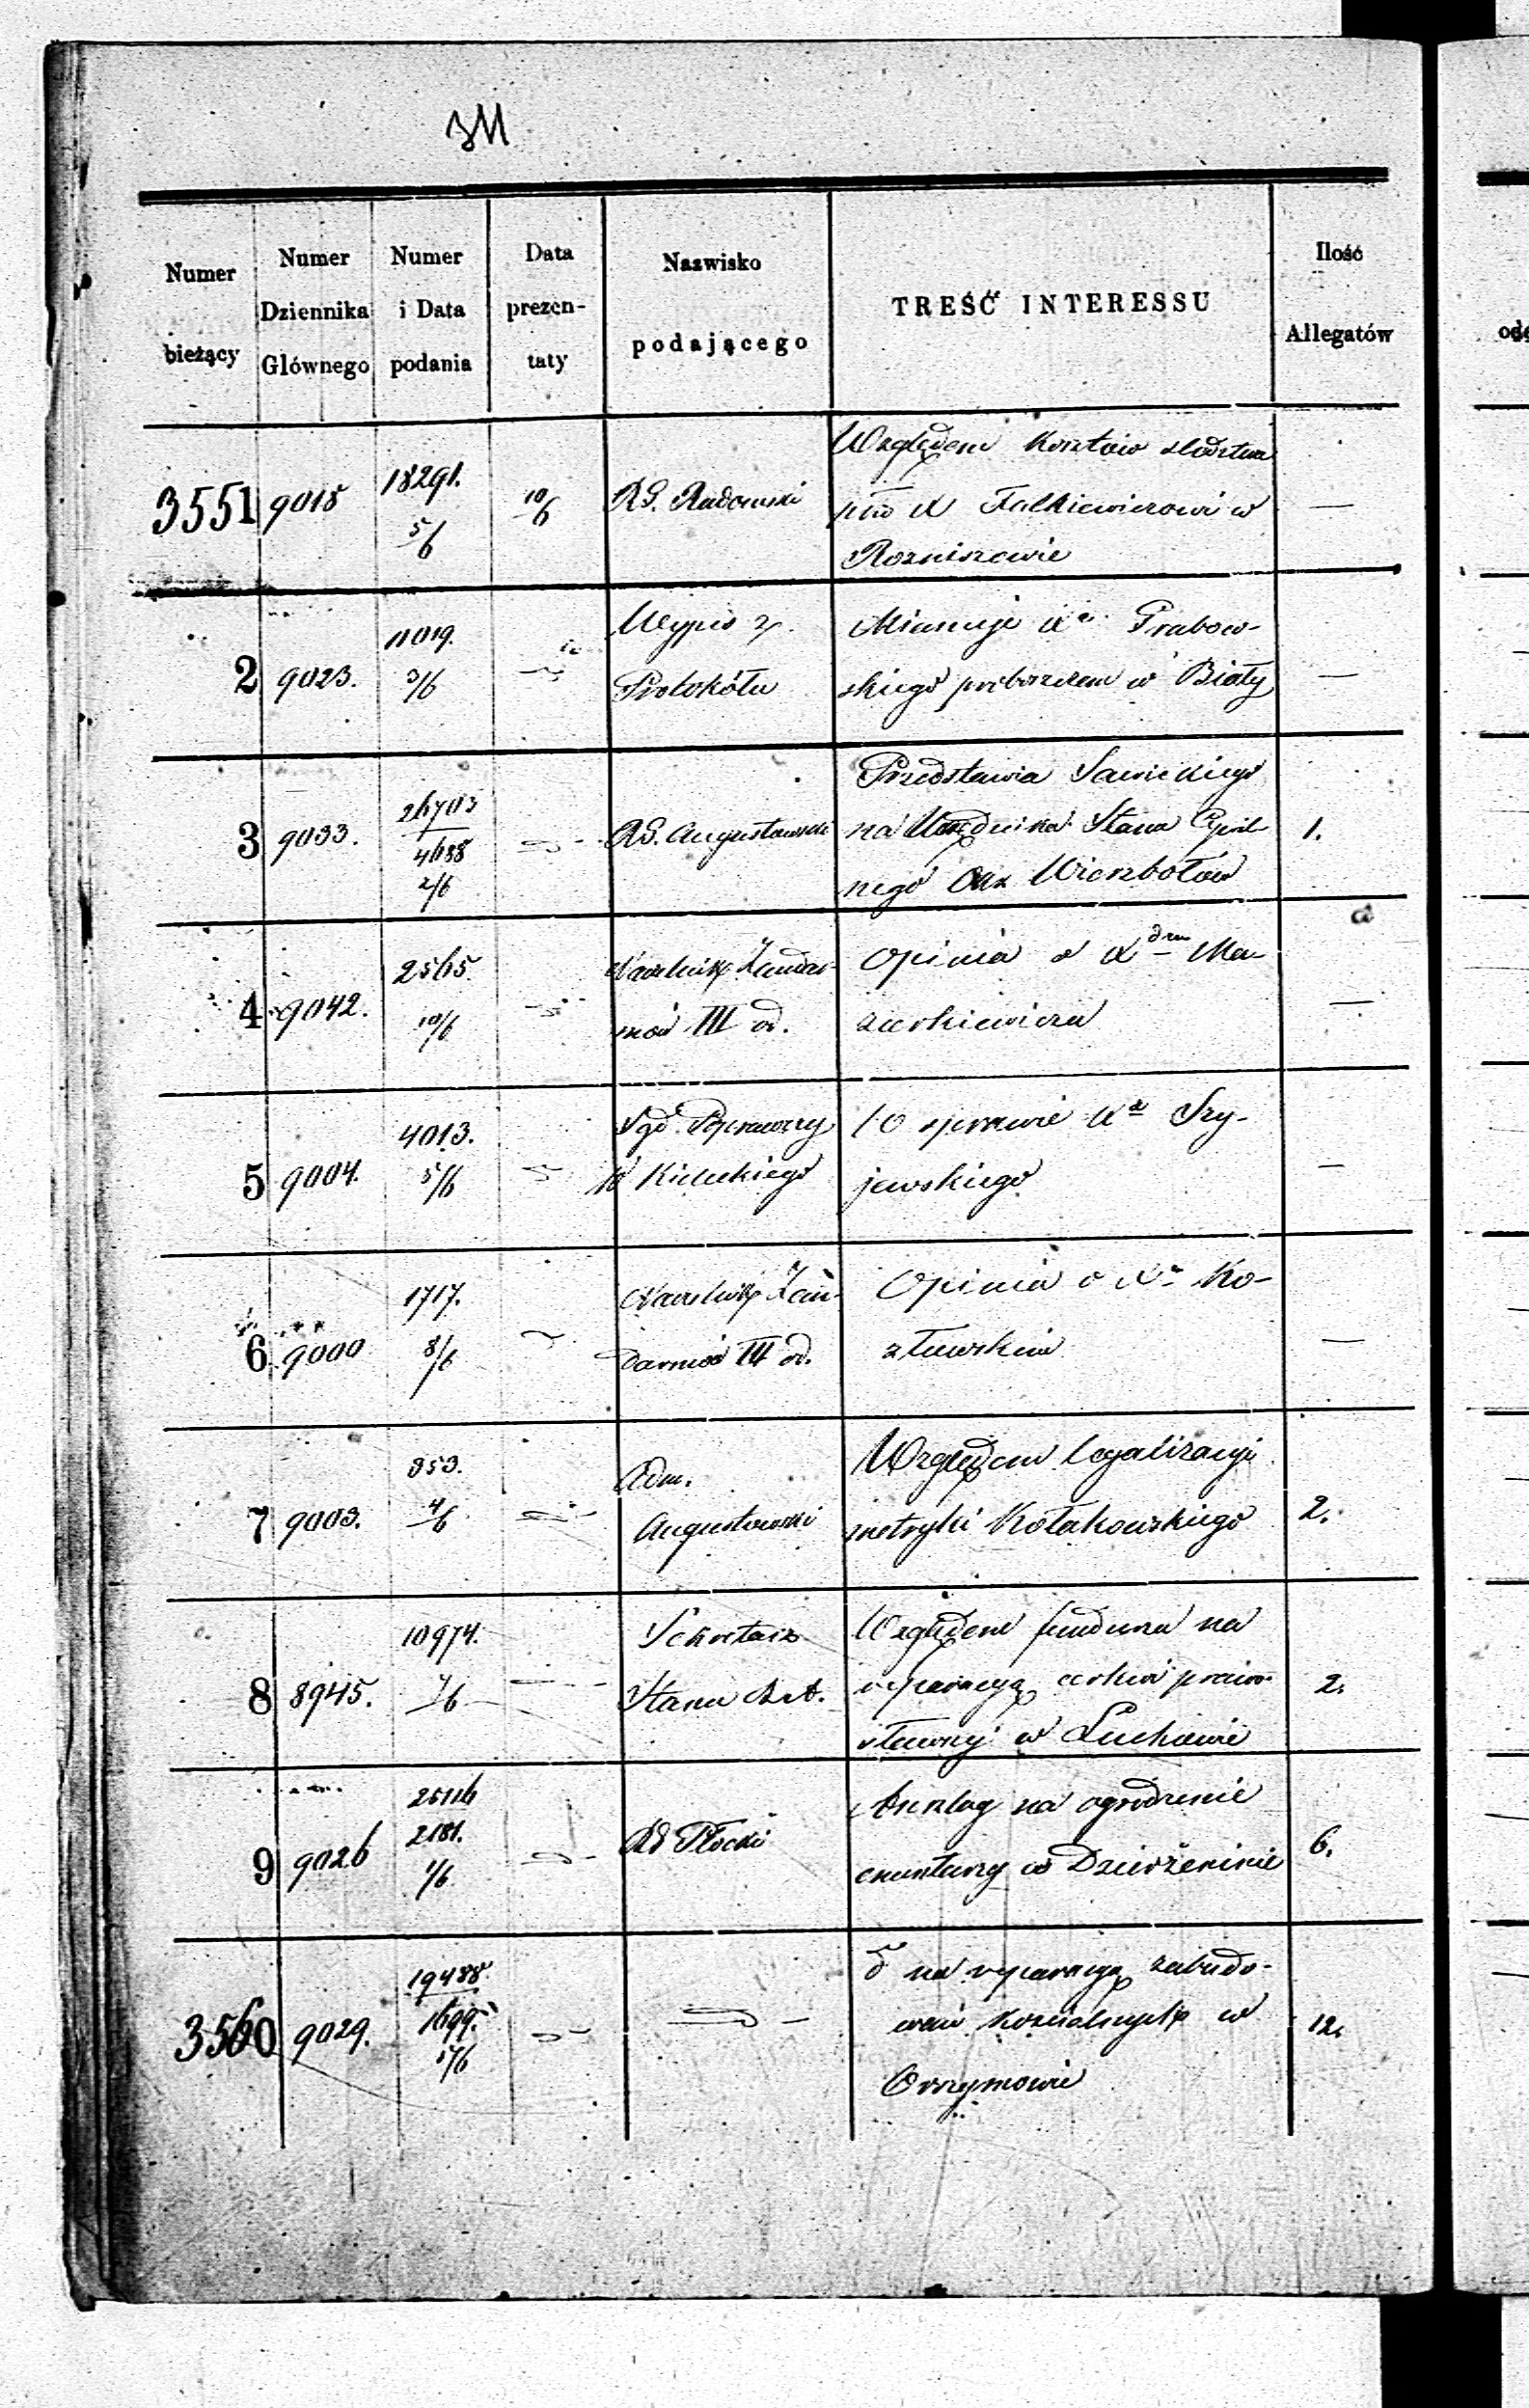 Numer bieżący
Numer Dziennika Głównego
Numer i Data podania
Data prezen-taty
Nazwisko podającego
TREŚĆ INTERESSU
Ilość Allegatów
3551 9018 18291. 5/6 10/6 RG. Radomski
Względem Kosztów śledztwa
X Falkiewiczowi w
Rozniszewie
—
2 9023. 11019. 3/6
Wypis z
Protokółu
Mianuje Xa Grabow-
skiego proboszczem w Biały
—
3 9033. 26703 4688 2/6 RG. Augustowski
Przedstawia Sawickiego
na Urzędnika Stanu Cywil-
nego Wierzbołów
1.
4 9042. 2565. 10/6
Naczelnik Żandar-
mów III od.
Opinia o X Ma-
zurkiewiczu
—
5 9004. 4013. 5/6
Sąd Poprawczy
Kieleckiego
O sprawie Xa Szy-
jewskiego
—
6 9000 1717. 8/6
Naczelnik Żan-
darmów III od.
Opinia o Xu Ko-
złowskim
—
7 9003. 353. 4/6
Adm.
Augustowski
Względem legalizacyi
metryki Kołakowskiego
2.
8 8945. 10974. 7/6
Sekretarz
Stanu
Względem funduszu na
reparacyą cerkwi prawo-
sławnej w Luchowie
2.
9 9026 25116 2181. 1/6 RG Płocki
Anszlag na ogrodzenie
cmentarzy w Dzierżeninie
6.
3560 9029. 19488 1699. 5/6
na reparacyą zabudo-
wań kościelnych w
Orszymowie
12.